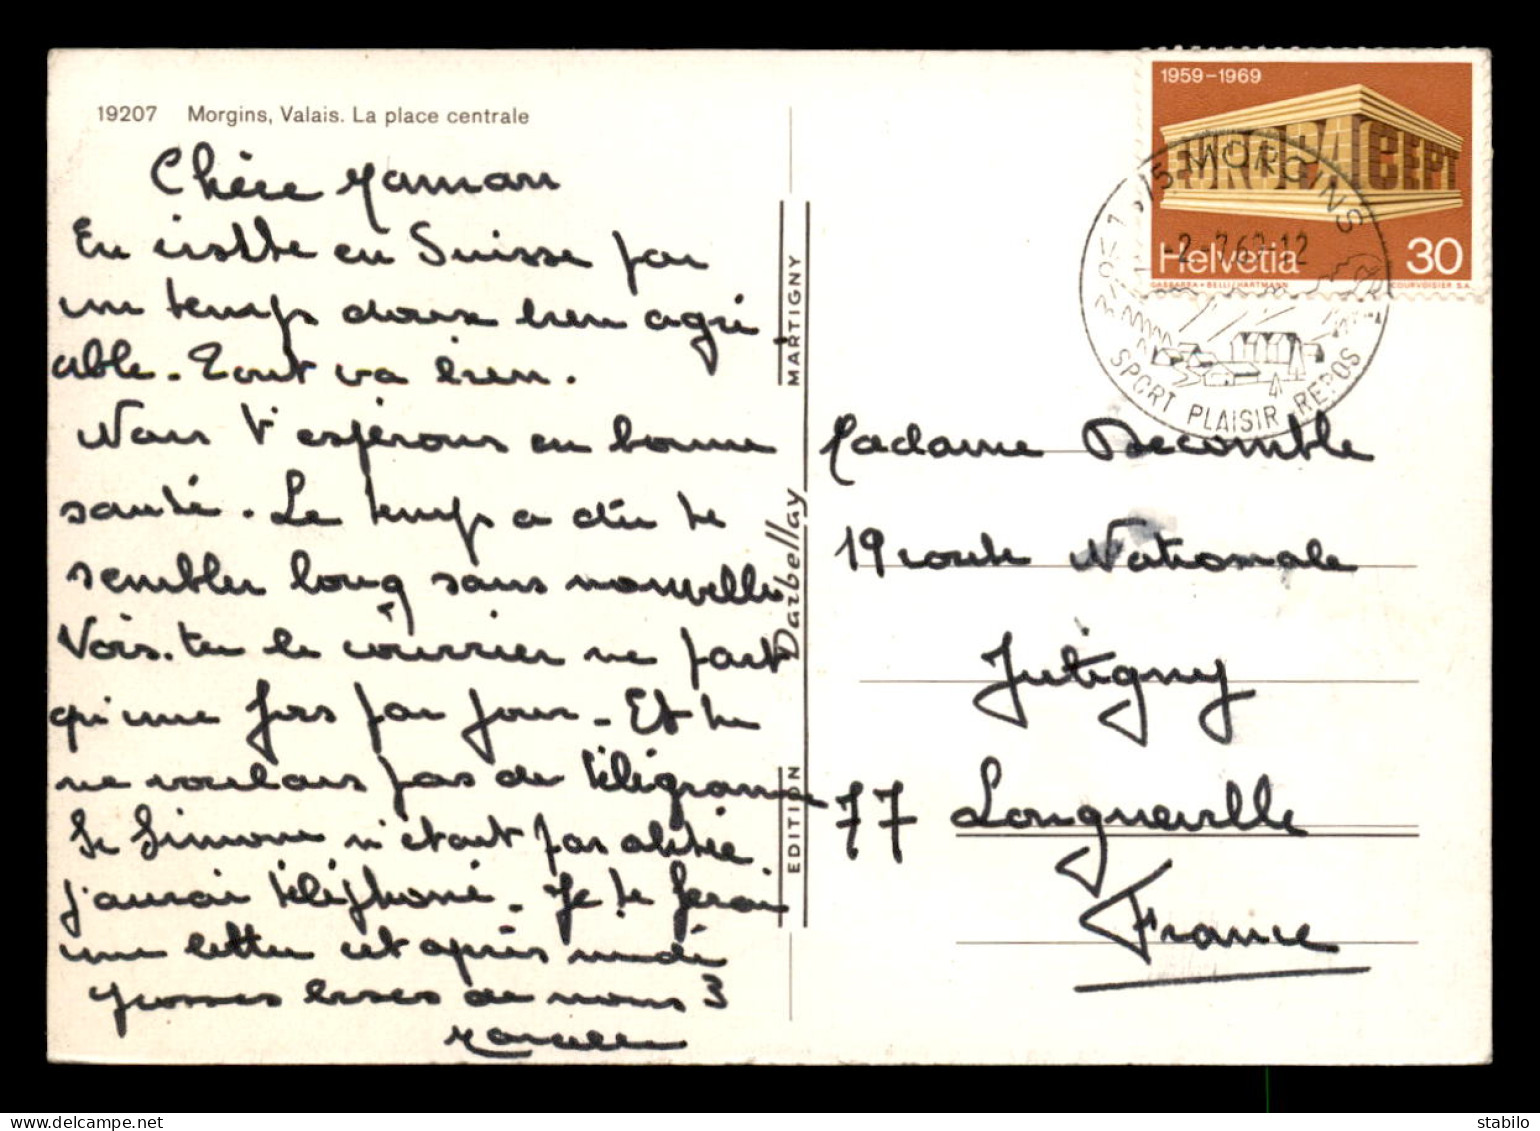 19207 Morgins, Valais. La place centrale
Chère Maman
En visite en Suisse par
un temps doux bien agré
able. Tout va bien.
Nous t'espérons en bonne
santé. Le temps a dû te
sembler long sans nouvelle
Vois-tu le courrier ne part
qu'une fois par jour. Et tu
ne voulais pas de télégramme
Si Simone n'était pas alitée
j'aurai téléphoné. Je te ferai
une lettre cet après midi
Grosses bises de nous 3
Marcelle
EDITION Darbellay MARTIGNY
1959-1969
EUROPA CEPT
Helvetia 30
GASBARRA+BELLI/HARTMANN COURVOISIER S.A.
1875 MORGINS
-2.-7.69.-12
SPORT PLAISIR REPOS
Madame Decomble
19 route Nationale
Jutigny
77 Longueville
France
stabilo
delcampe.net